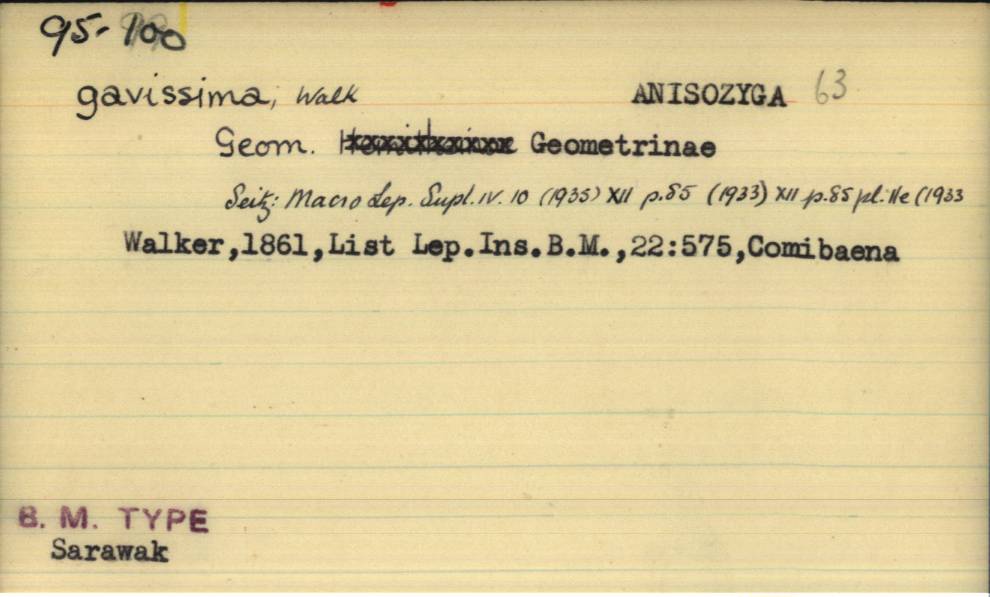 95-100
gavissima, Walk ANISOZYGA 63
Geom. Geometrinae
Seitz: Macro Lep. Supl. IV. 10 (1935) XII p.85 (1933) XII p.85 pl.11e (1933
Walker,1861,List Lep.Ins.B.M.,22:575,Comibaena
B. M. TYPE
Sarawak